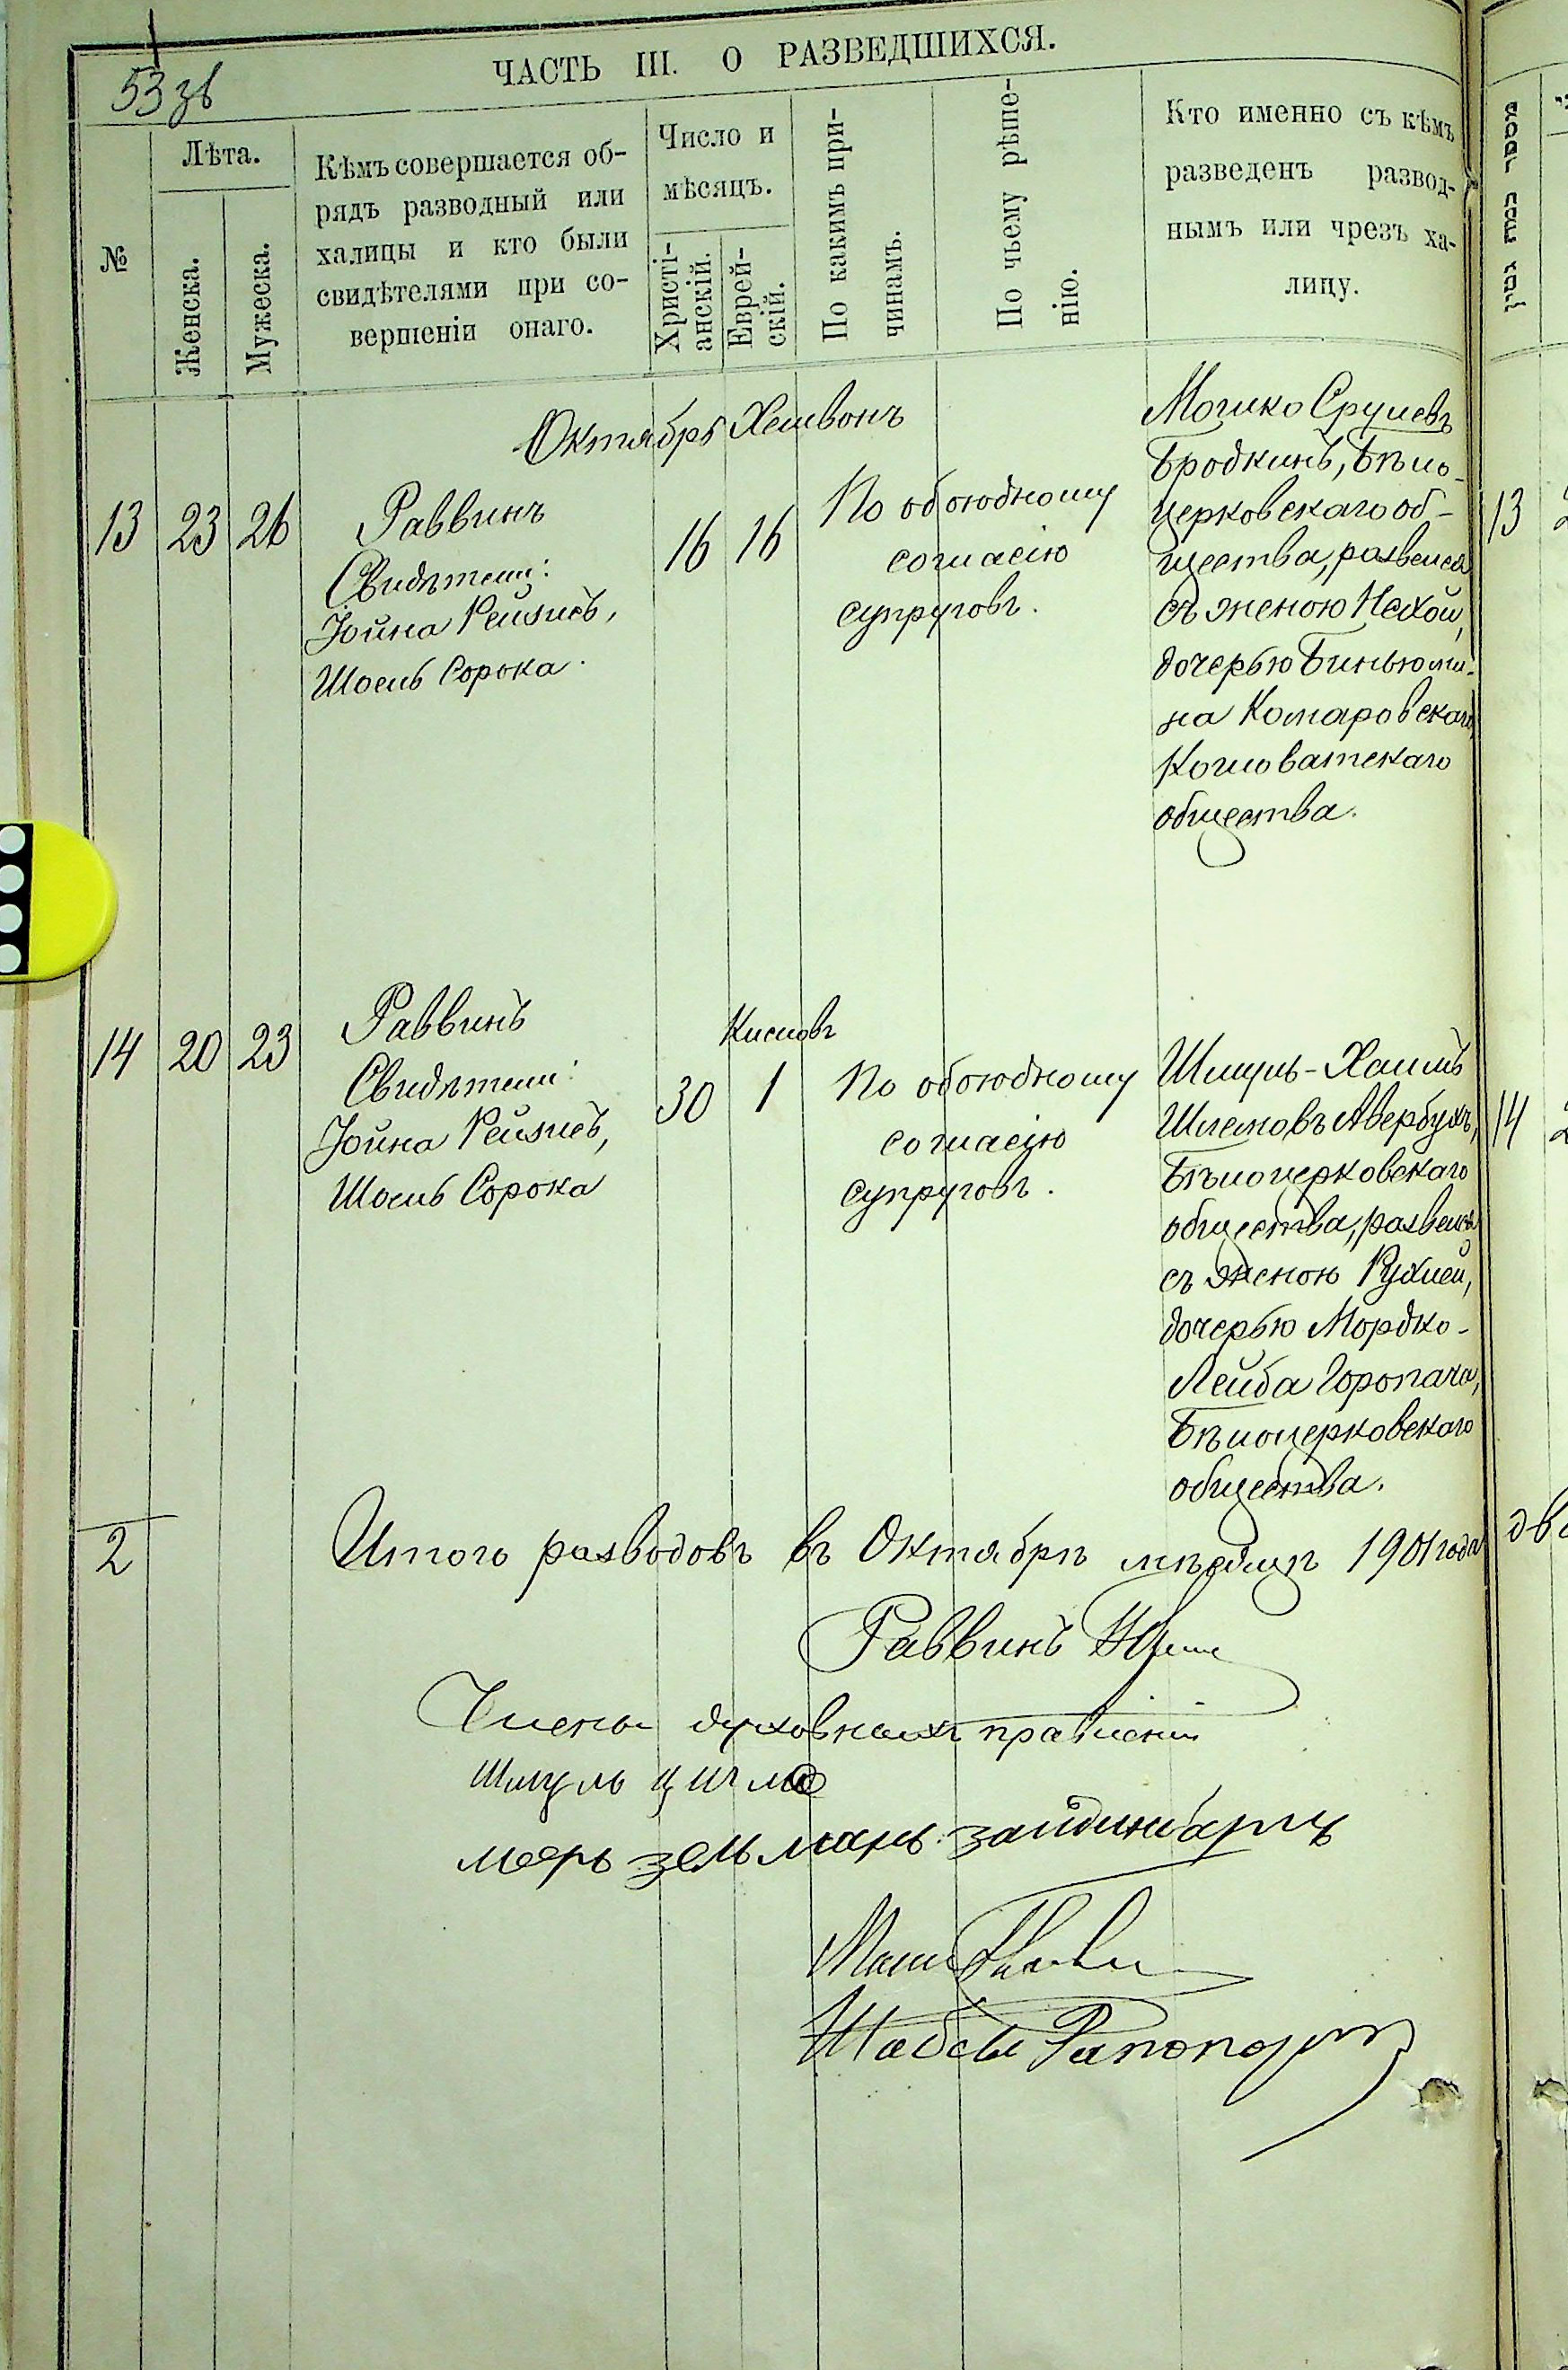 53 зв
ЧАСТЬ III. О РАЗВЕДШИХСЯ.
№
Лѣта.
Женска.
Мужеска.
Кѣмъ совершается об-
рядъ разводный или
халицы и кто были
свидѣтелями при со-
вершеніи онаго.
Число и
мѣсяцъ.
Христі-
анскій.
Еврей-
скій.
По какимъ при-
чинамъ.
По чьему рѣше-
нію.
Кто именно съ кѣмъ
разведенъ развод-
нымъ или чрезъ ха-
лицу.
מספר כמה גטין
Октябрь Хешвонъ
13 23 26
Раввинъ
Свидѣтели:
Іойна Рейзисъ,
Шоель Сорока.
16 16
По обоюдному
согласію
супруговъ.
Мошко Срулевъ
Бродкинъ, Бѣло-
церковскаго об-
щества, развелся
съ женою Нехой,
дочерью Биньоми-
на Комаровскаго,
Кошоватскаго
общества.
13
14 20 23
Раввинъ
Свидѣтели:
Іойна Рейзисъ,
Шоель Сорока
Кислевъ
30 1
По обоюдному
согласію
супруговъ.
Шмуль-Хаимъ
Шлемовъ Авербухъ,
Бѣлоцерковскаго
общества, развелся
съ женою Рухлей,
дочерью Мордко-
Лейба Горопаха,
Бѣлоцерковскаго
общества.
14
2
Итого разводовъ въ Октябрѣ мѣсяцѣ 1901 года
Раввинъ
Члены духовныхъ правленій
Шмуль
меерь зельмань зайдинбаргъ
Шабсы Рапопортъ